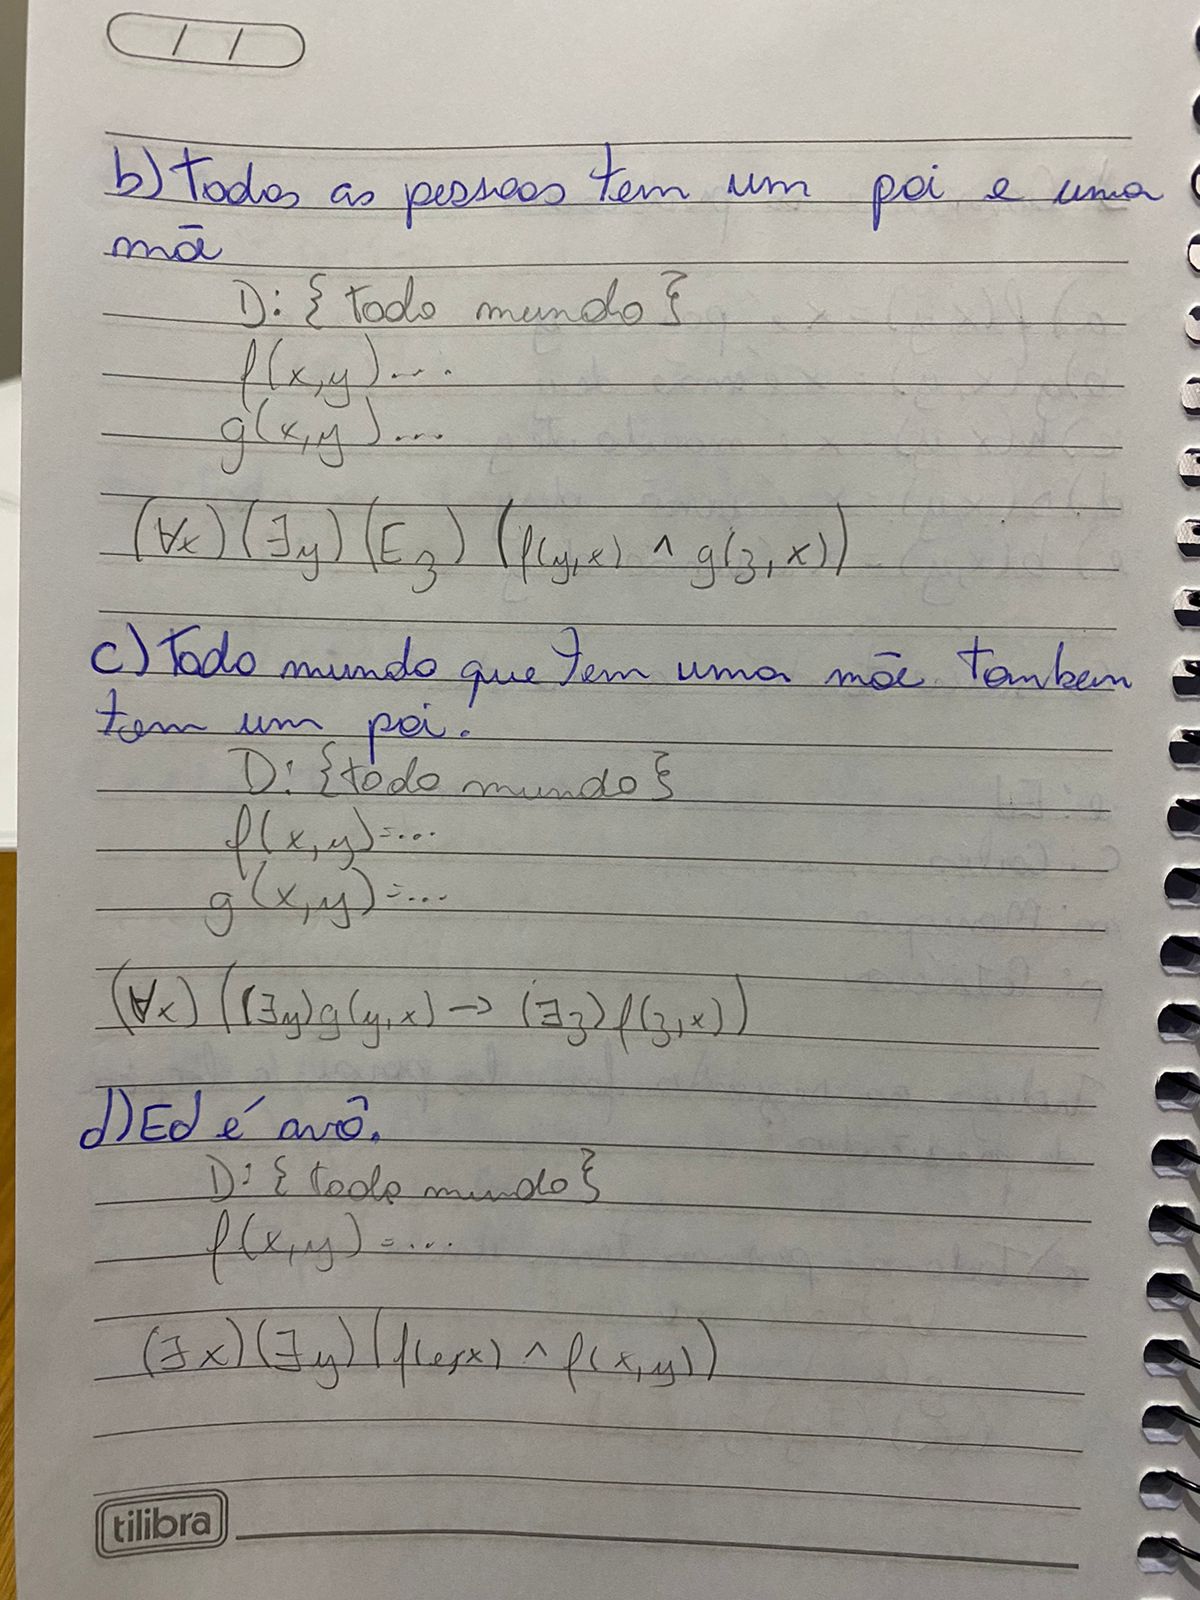 b) Todas as pessoas tem um pai e uma
mãe
D: { todo mundo }
f(x,y)...
g(x,y)...
(∀x)(∃y)(E3)(f(y,x) ∧ g(3,x))
c) Todo mundo que tem uma mãe tambem
tem um pai.
D: {todo mundo}
f(x,y)=...
g(x,y)=...
(∀x)((∃y)g(y,x) → (∃3)f(3,x))
d) Ed é avô.
D: { todo mundo}
f(x,y)=...
(∃x)(∃y)(f(e,x) ∧ f(x,y))
tilibra